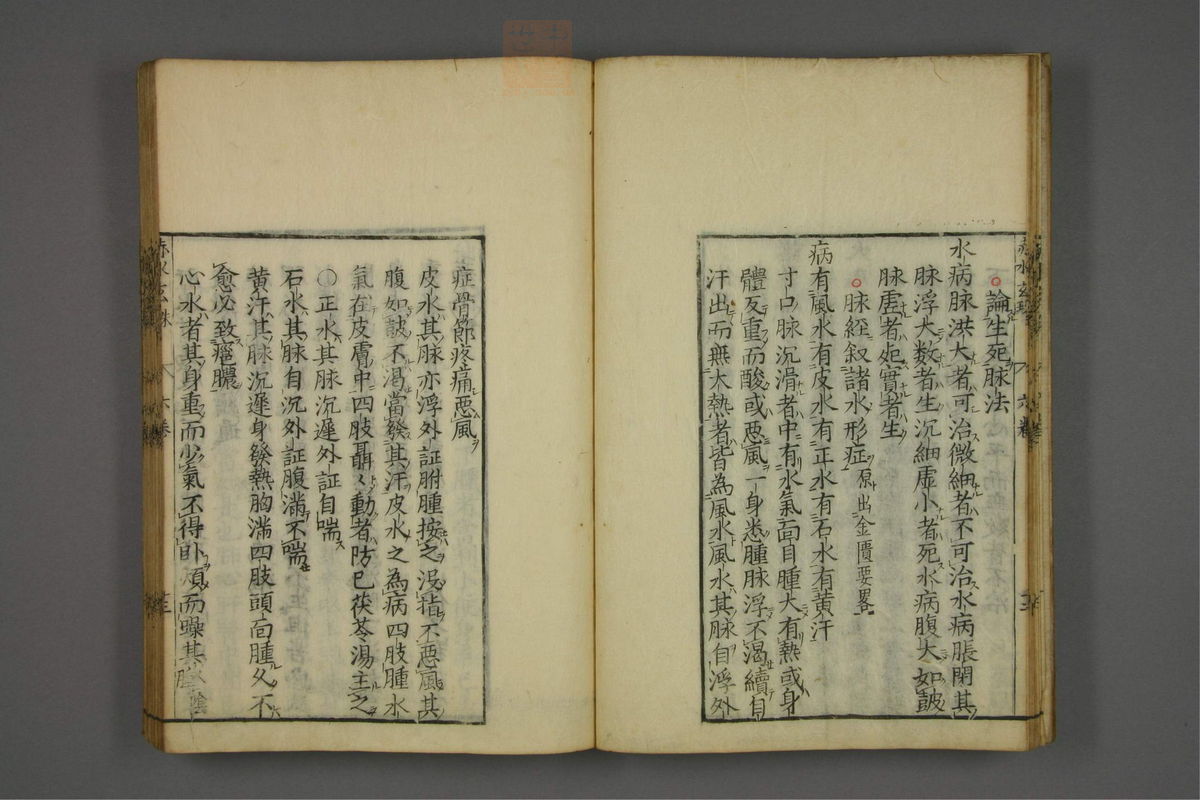 論生死脉法
水病脉洪大者可治微細者不可治水病脹閉其
脉浮大数者生沉細虚小者死水病腹大如皷
脉虚者死實者生
脉經叙諸水形症原出金匱要畧
病有風水有皮水有正水有石水有黄汗
寸口脉沉滑者中有水氣面目腫大有熱或身
體反重而酸或悪風一身悉腫脉浮不渴續自
汗出而無大熱者皆為風水風水其脉自浮外
症骨節疼痛悪風
皮水其脉亦浮外証胕腫按之没指不悪風其
腹如皷不渴當發其汗皮水之為病四肢腫水
氣在皮膚中四肢聶〻動者防已茯苓湯主之
〇正水其脉沉遲外証自喘
石水其脉自沉外証腹滿不喘
黄汗其脉沉遲身發熱胸滿四肢頭面腫久不
愈必致癰膿
心水者其身重而少氣不得卧煩而躁其陰
赤水玄珠 六卷